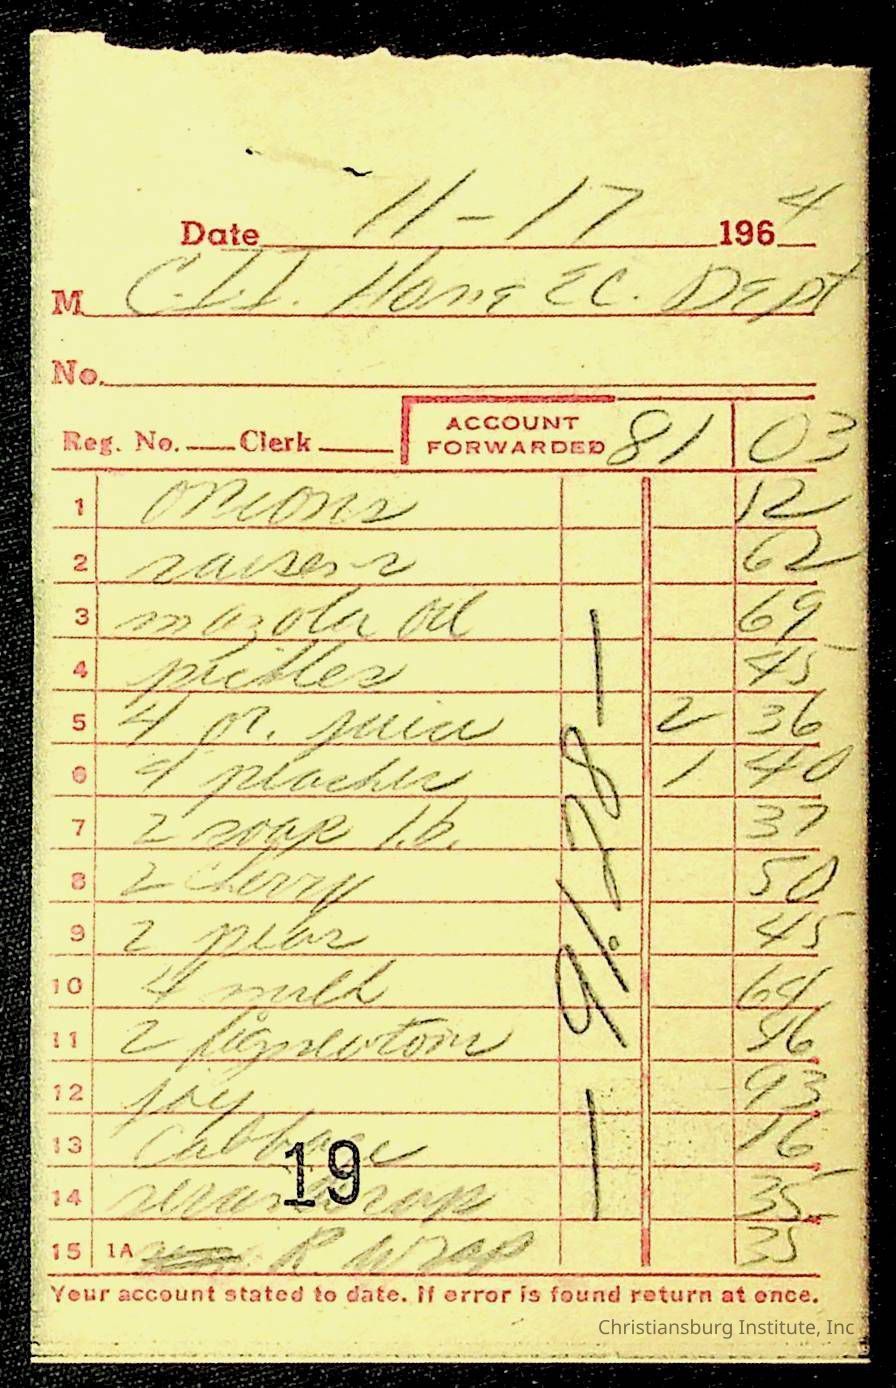 Date 11-17 1964
M C.I.I. Home Ec. Dept
No.
Reg. No. Clerk ACCOUNT FORWARDED 81 03
1 onions 12
2 raisens 62
3 mazola oil 69
4 pickles 45
5 4 or. juice 2 36
6 4 peaches 1 40
7 2 soap 37
8 2 cherry 50
9 2 pear 45
10 4 milk 64
11 2 fignewtons
12 joy 93
13 Cabbage 16
14 35
15 1A R wrap 35
— 91.78 —
19
Your account stated to date. If error is found return at once.
Christiansburg Institute, Inc